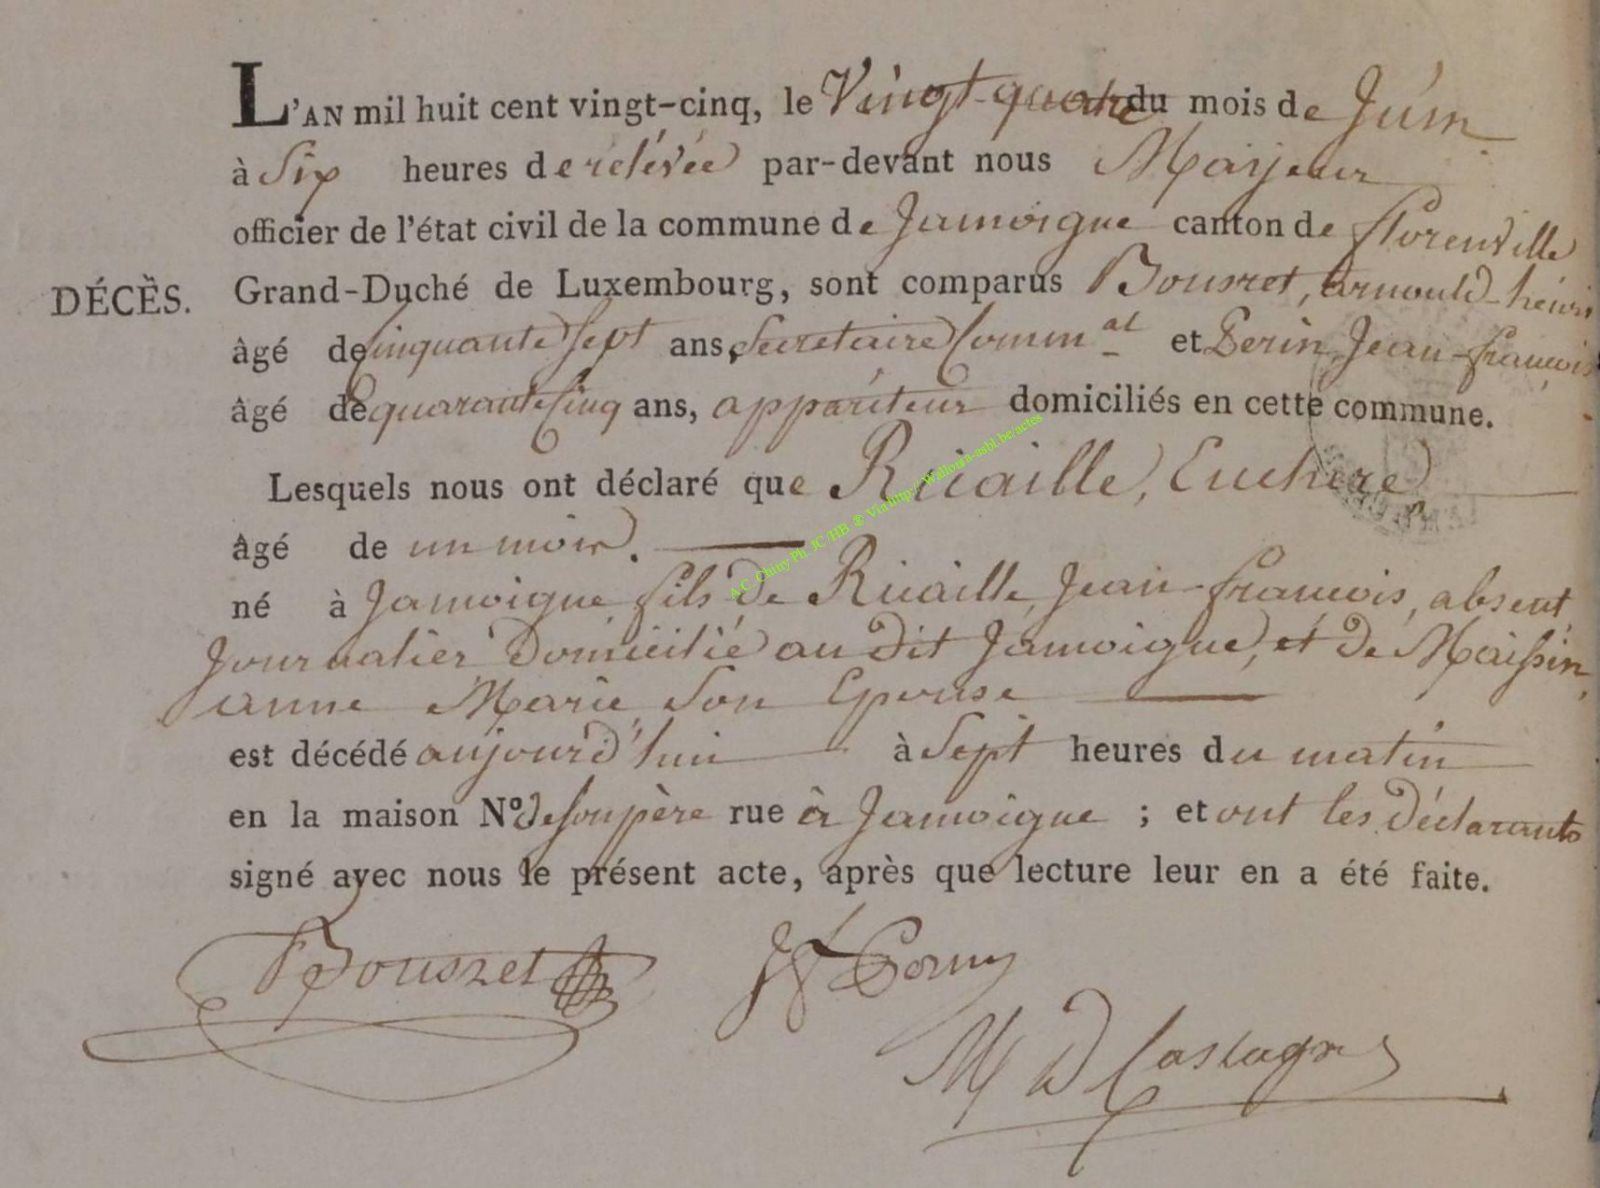 L'AN mil huit cent vingt-cinq, le Vingt-quatre du mois de Juin
à Six heures de relévée par-devant nous Maiyeur
officier de l'état civil de la commune de Jamoigne canton de florenville
DÉCÈS.
Grand-Duché de Luxembourg, sont comparus Bousret, arnould-henri
âgé de cinquante Sept ans, Secretaire Comm.al et Perin, Jean-francois
âgé de quarante Cinq ans, appariteur domiciliés en cette commune.
Lesquels nous ont déclaré que Ricaille, Euchere
âgé de un mois.
né à Jamoigne fils de Ricaille, Jean-francois, absent,
Journalier Domicilié au dit Jamoigne, et de Maissin,
anne Marie Son Epouse
est décédé aujourd'hui à Sept heures du matin
en la maison No de son père rue à Jamoigne ; et ont les déclarants
signé avec nous le présent acte, après que lecture leur en a été faite.
Bousret
A.C. Chiny Ph. JC-HB © Via http://Wallonia-asbl.be/actes